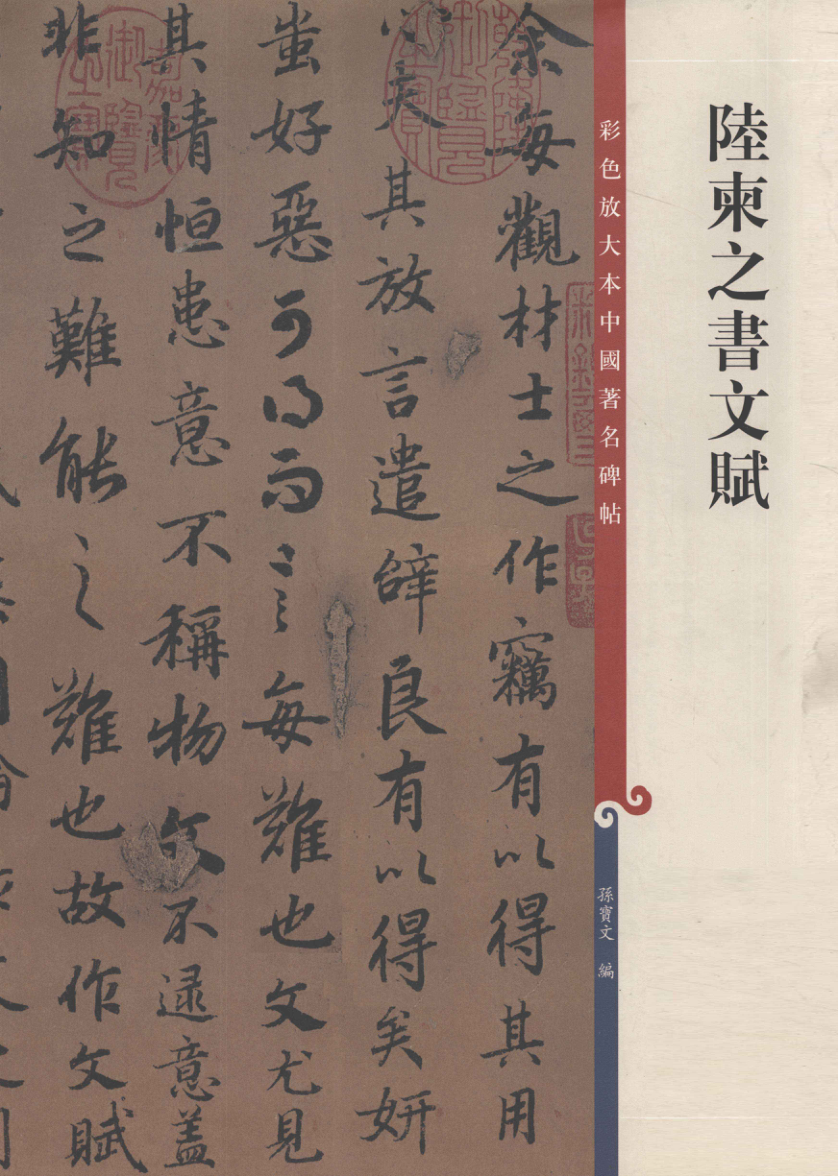 陸柬之書文賦
彩色放大本中國著名碑帖
孫寶文 編
余每觀材士之作竊有以得其用
心夫其放言遣辭良有以得矣妍
蚩好惡可得而言每難也文尤見
其情恒患意不稱物文不逮意盖
非知之難能之難也故作文賦
乾隆御覽之寶
嘉慶御覽之寶